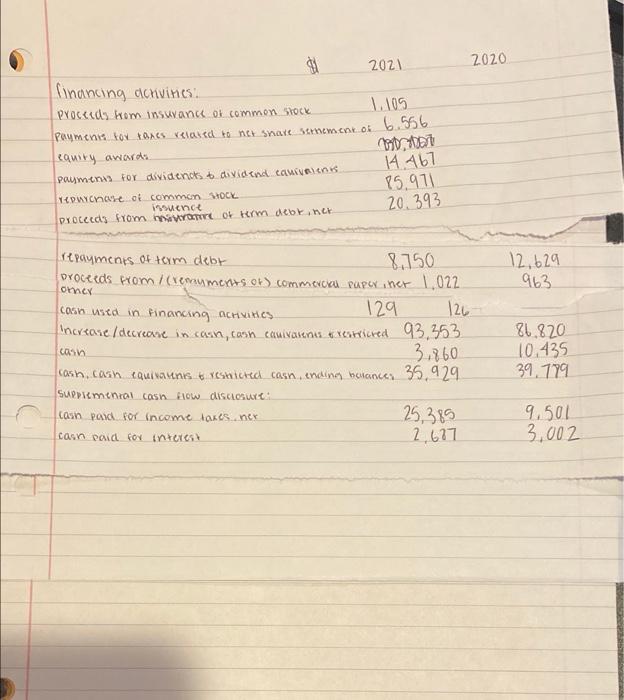 $ 2021 2020
financing activities:
proceeds from insuvance of common stock 1,105
payments for taxes related to net snare settlement of 6.556
equity awards
payments for dividends & dividend equivalents 14.467
repurchase of common stock 85,971
issuence
proceeds from of term debt, net 20.393
repayments of term debt 8,750 12,629
proceeds from / (repayments of) commercial paper, net 1,022 963
other
cash used in financing activities 129 126
Increase/decrease in cash, cash equivalents & restricted 93,353 86.820
cash 3,860 10.435
cash, cash equivalents & restricted cash, ending balances 35,929 39.779
supplemental cash flow disclosure:
cash paid for income taxes, net 25,385 9,501
cash paid for interest 2,687 3,002